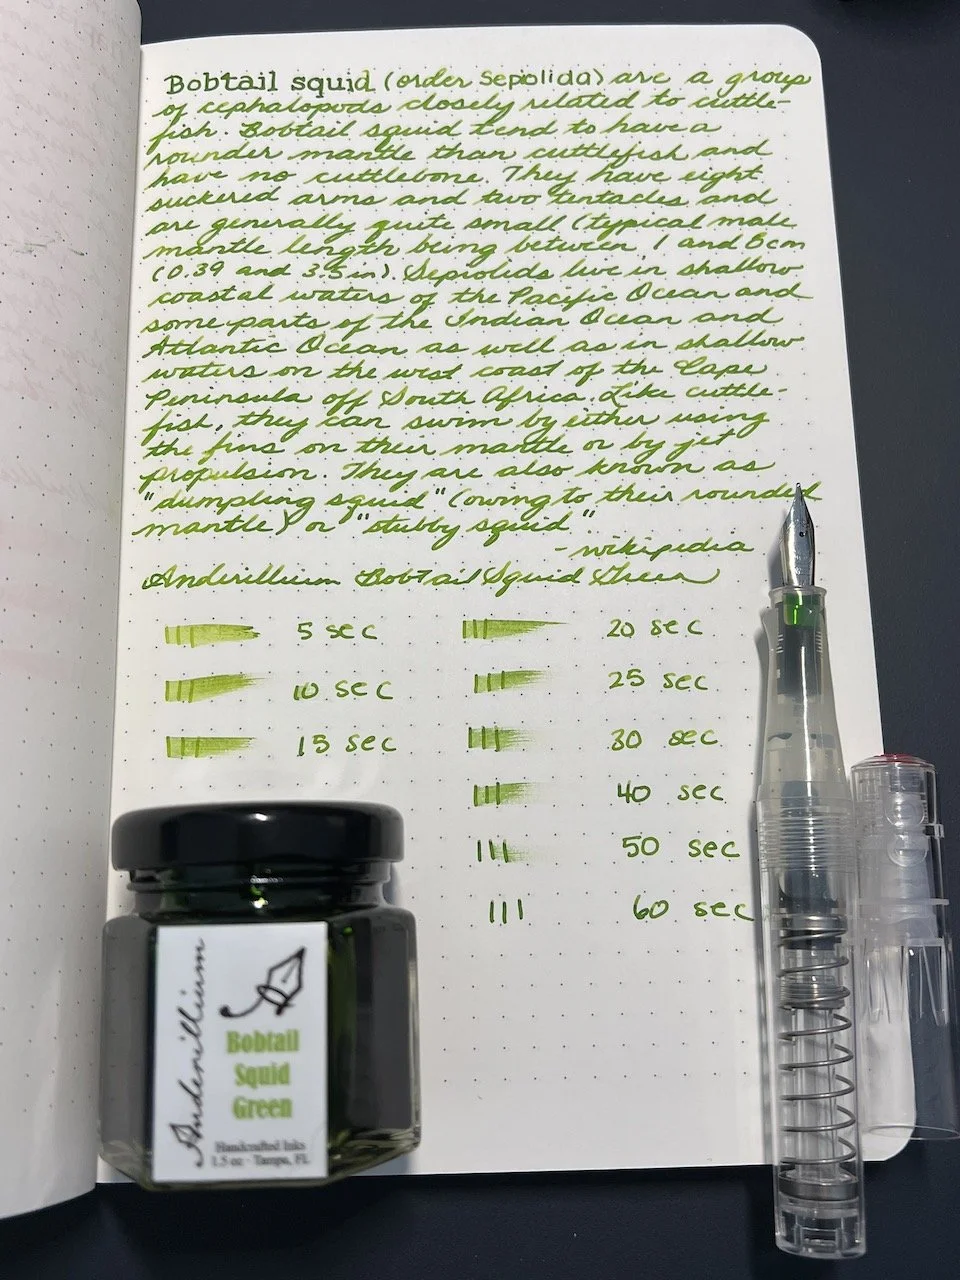 Bobtail squid (order Sepiolida) are a group
of cephalopods closely related to cuttle-
fish. Bobtail squid tend to have a
rounder mantle than cuttlefish and
have no cuttlebone. They have eight
suckered arms and two tentacles and
are generally quite small (typical male
mantle length being between 1 and 8cm
(0.39 and 3.5 in). Sepiolids live in shallow
coastal waters of the Pacific Ocean and
some parts of the Indian Ocean and
Atlantic Ocean as well as in shallow
waters on the west coast of the Cape
Peninsula off South Africa. Like cuttle-
fish, they can swim by either using
the fins on their mantle or by jet
propulsion. They are also known as
"dumpling squid" (owing to their rounded
mantle) or "stubby squid"
- wikipedia
Anderillium Bobtail Squid Green
5 sec
10 sec
15 sec
20 sec
25 sec
30 sec
40 sec
50 sec
60 sec
Anderillium
Bobtail
Squid
Green
Handcrafted Inks
1.5 oz - Tampa, FL